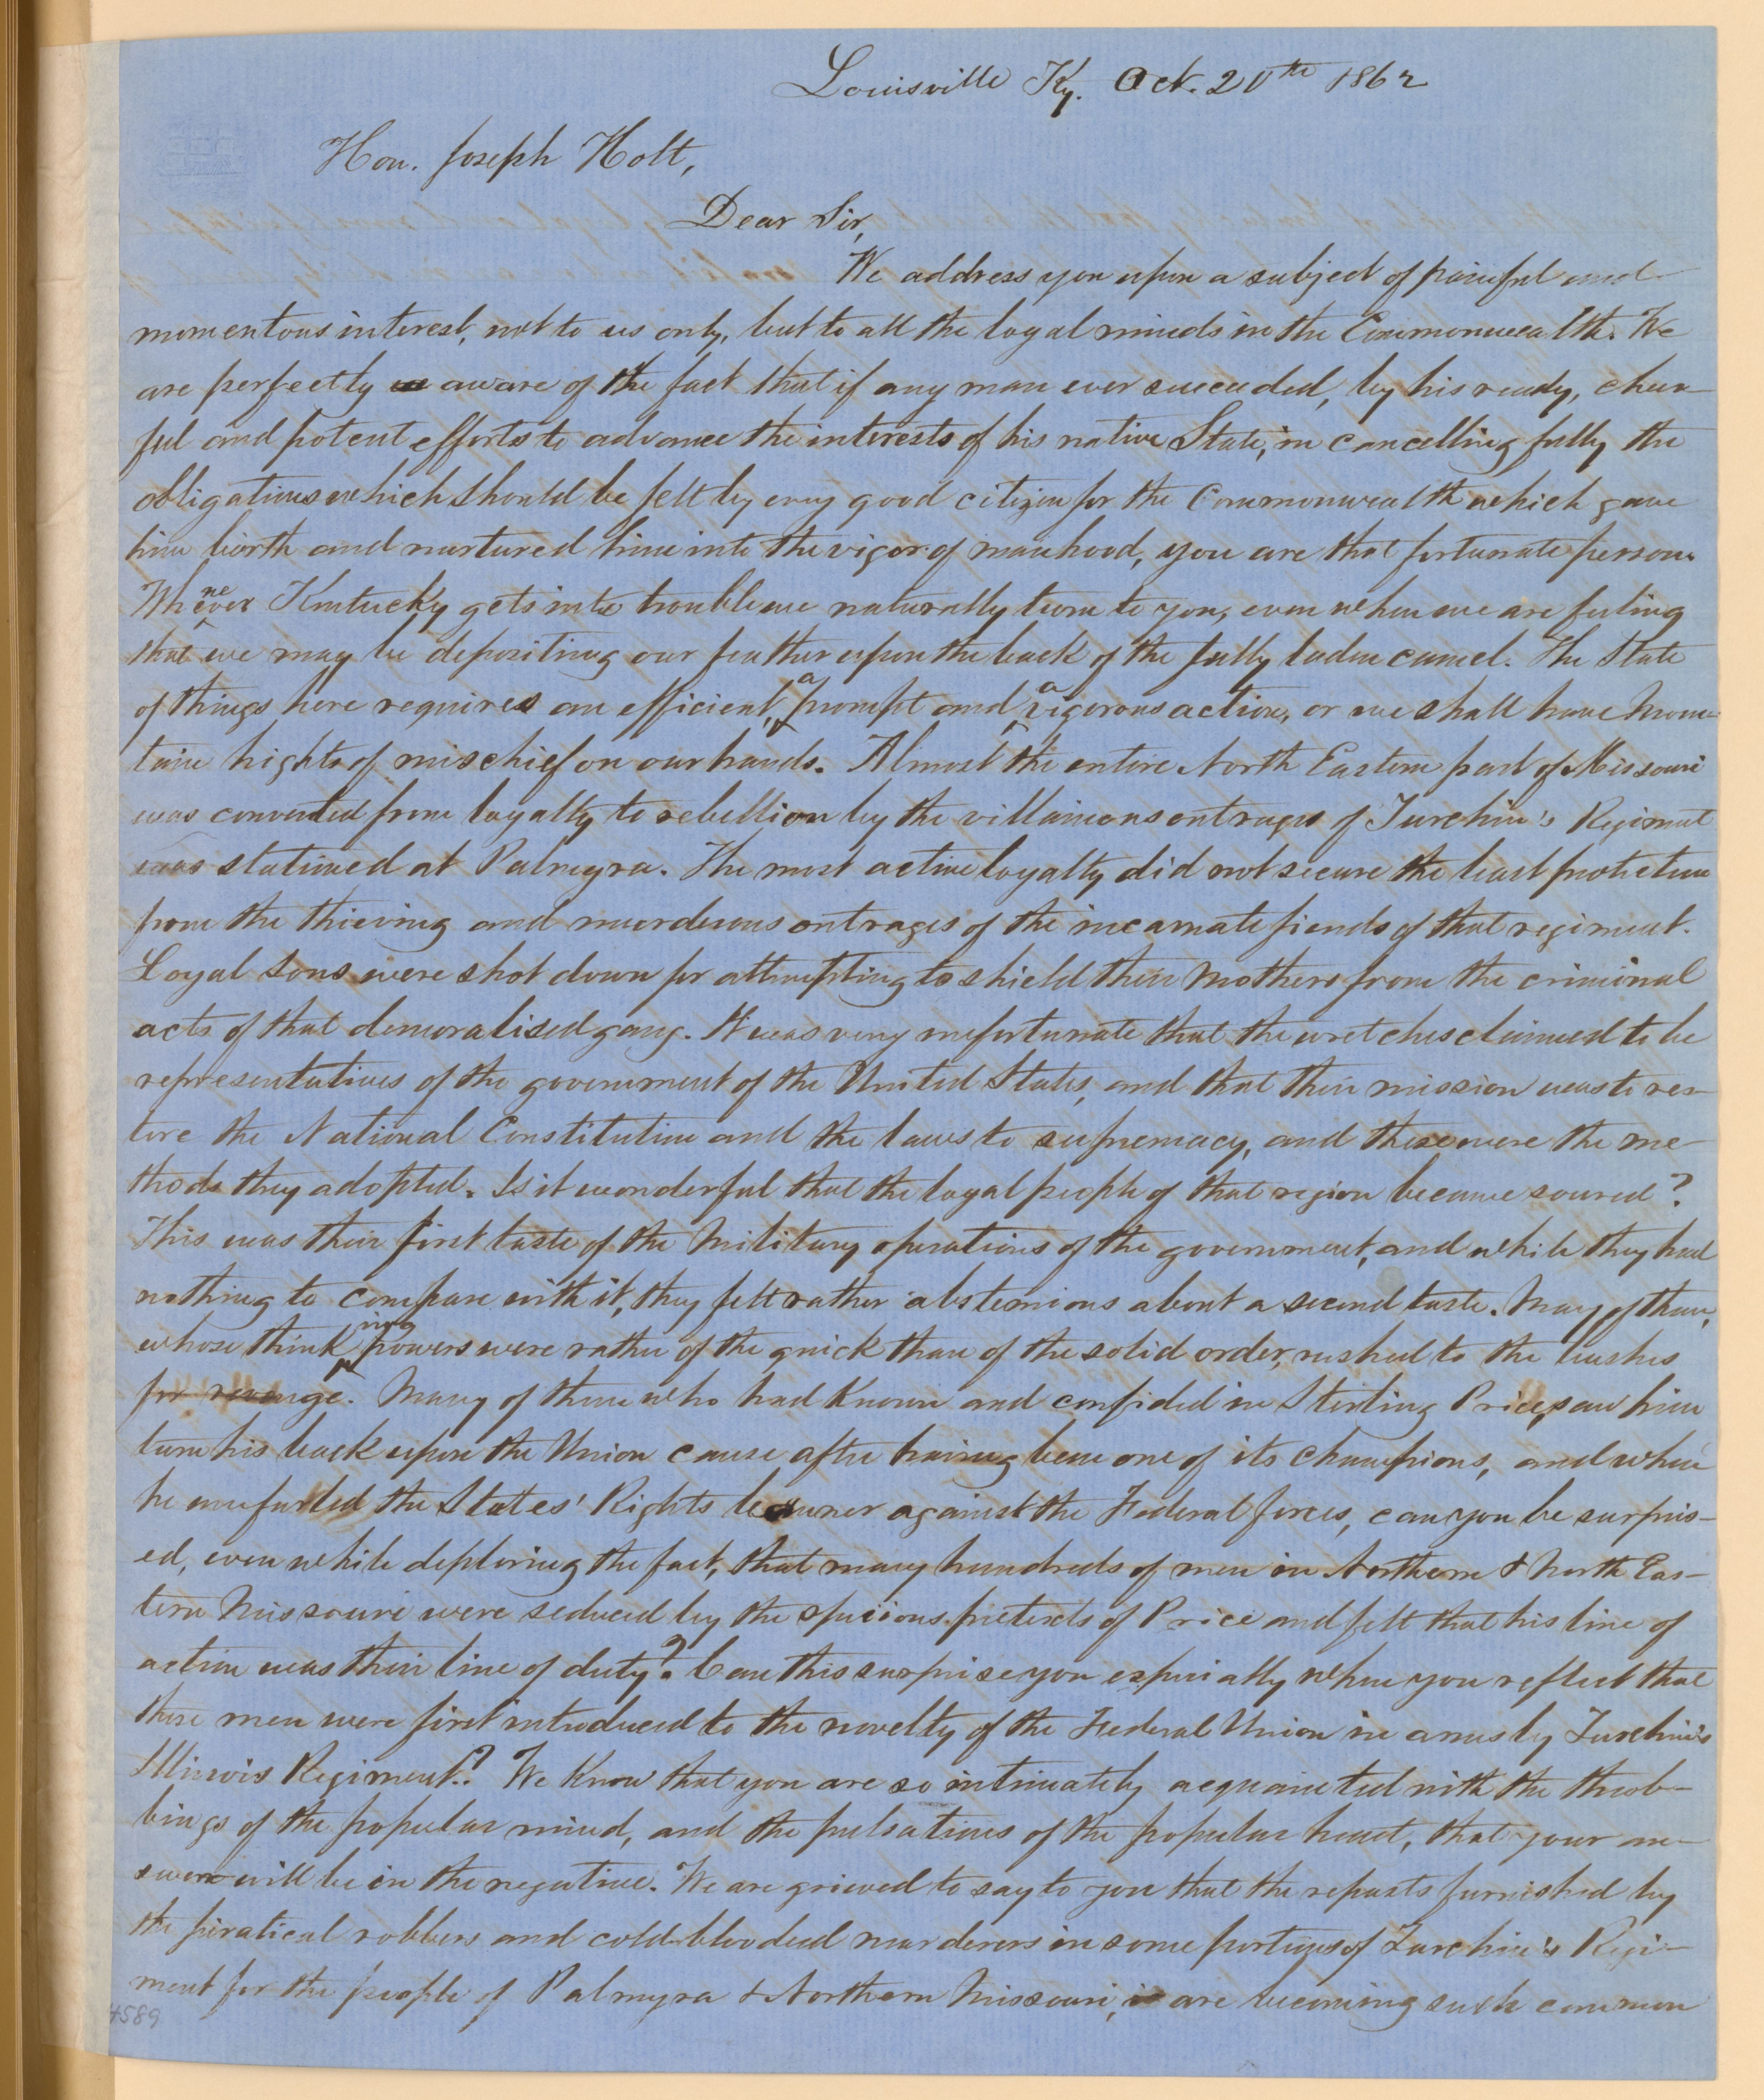 Louisville Ky. Oct. 20th 1862
Hon. Joseph Holt,
Dear Sir,
We address you upon a subject of painful and
momentous interest, not to us only, but to all the loyal minds in the Commonwealth. We
are perfectly aware of the fact that if any man ever succeeded, by his ready, cheer-
ful and potent efforts to advance the interests of his native State, in cancelling fully the
obligations which should be felt by every good citizen for the Commonwealth which gave
him birth and nurtured him into the vigor of manhood, you are that fortunate person.
Whenever Kentucky gets into trouble we naturally turn to you, even when we are feeling
that we may be depositing our feather upon the back of the fully laden camel. The State
of things here requires an efficient, a prompt and a vigorous action, or we shall have moun-
tain hights of mischief on our hands. Almost the entire North Eastern part of Missouri
was converted from loyalty to rebellion by the villainous outrages of Turchin's Regiment
was stationed at Palmyra. The most active loyalty did not secure the least protection
from the thieving and murderous outrages of the incarnate fiends of that regiment.
Loyal sons were shot down for attempting to shield their mothers from the criminal
acts of that demoralised gang. It was very unfortunate that the wretches claimed to be
representatives of the government of the United States, and that their mission was to res-
tore the National Constitution and the laws to supremacy, and these were the me-
thods they adopted. Is it wonderful that the loyal people of that region became soured?
This was their first taste of the military operations of the government, and while they had
nothing to compare with it, they felt rather abstemious about a second taste. Many of them,
whose thinking powers were rather of the quick than of the solid order, rushed to the bushes
for revenge. Many of them who had known and confided in Sterling Price, saw him
turn his back upon the Union cause after having been one of its champions, and when
he unfurled the States' Rights banner against the Federal forces, can you be surpris-
ed, even while deploring the fact, that many hundreds of men in Northern & North Eas-
tern Missouri were seduced by the specious pretexts of Price and felt that his line of
action was their line of duty? Can this surprise you especially when you reflect that
these men were first introduced to the novelty of the Federal Union in arms by Turchin's
Illinois Regiment? We know that you are so intimately acquainted with the throb-
bings of the popular mind, and the pulsations of the popular heart, that your an-
swer will be in the negative. We are grieved to say to you that the repasts furnished by
the piratical robbers and cold-blooded murderers in some portions of Turchin's Regi-
ment for the people of Palmyra & Northern Missouri, are becoming such common
4589